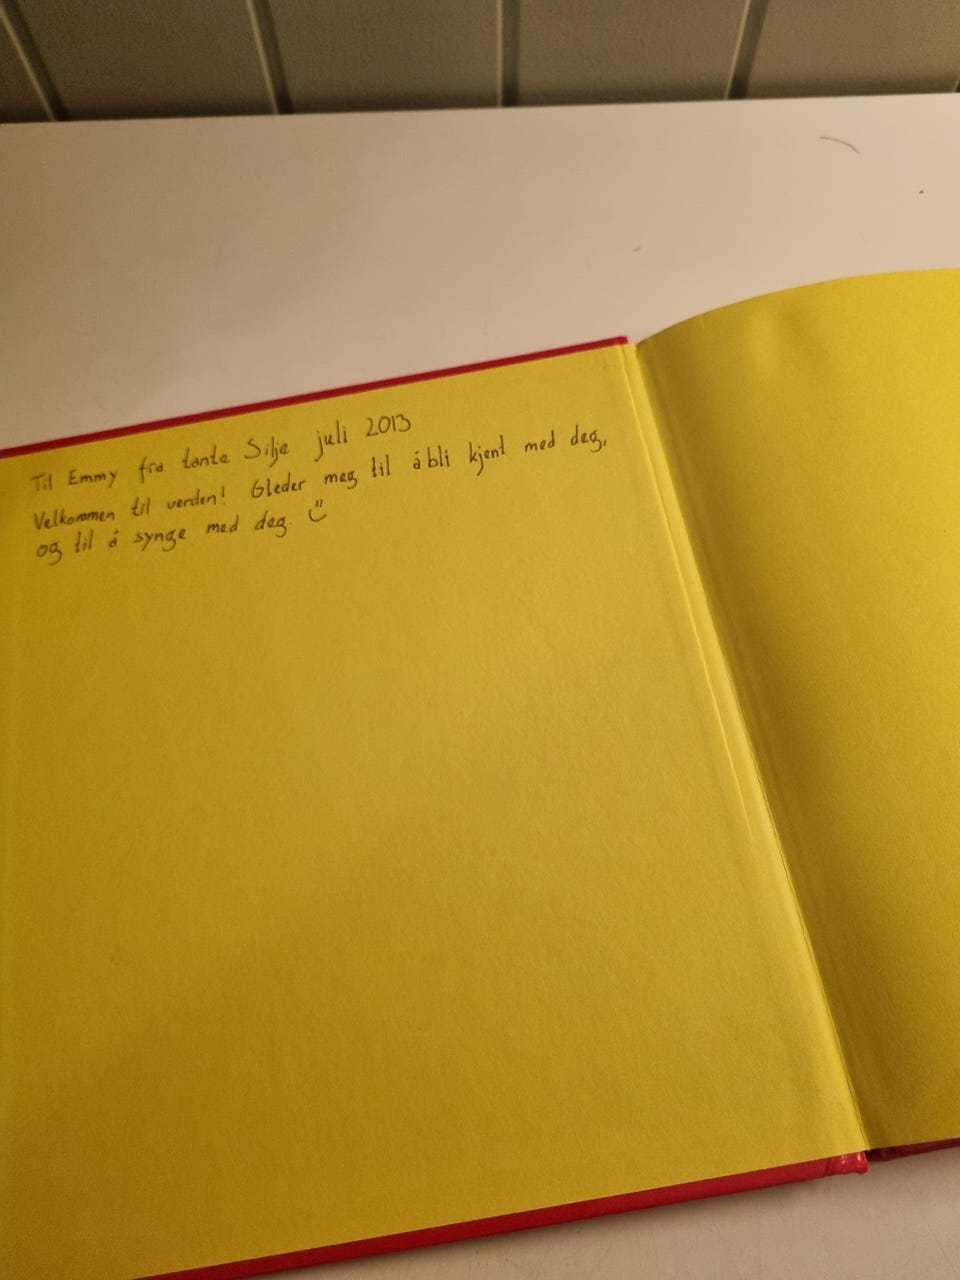 Til Emmy fra tante Silje juli 2013
Velkommen til verden! Gleder meg til å bli kjent med deg,
og til å synge med deg. :)